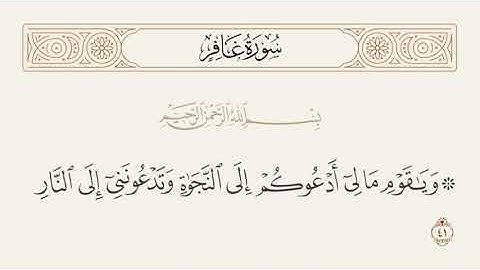 سُورَةُ غَافِرٍ
بِسْمِ اللَّهِ الرَّحْمَٰنِ الرَّحِيمِ
۞ وَيَٰقَوْمِ مَا لِيٓ أَدْعُوكُمْ إِلَى ٱلنَّجَوٰةِ وَتَدْعُونَنِيٓ إِلَى ٱلنَّارِ
٤١